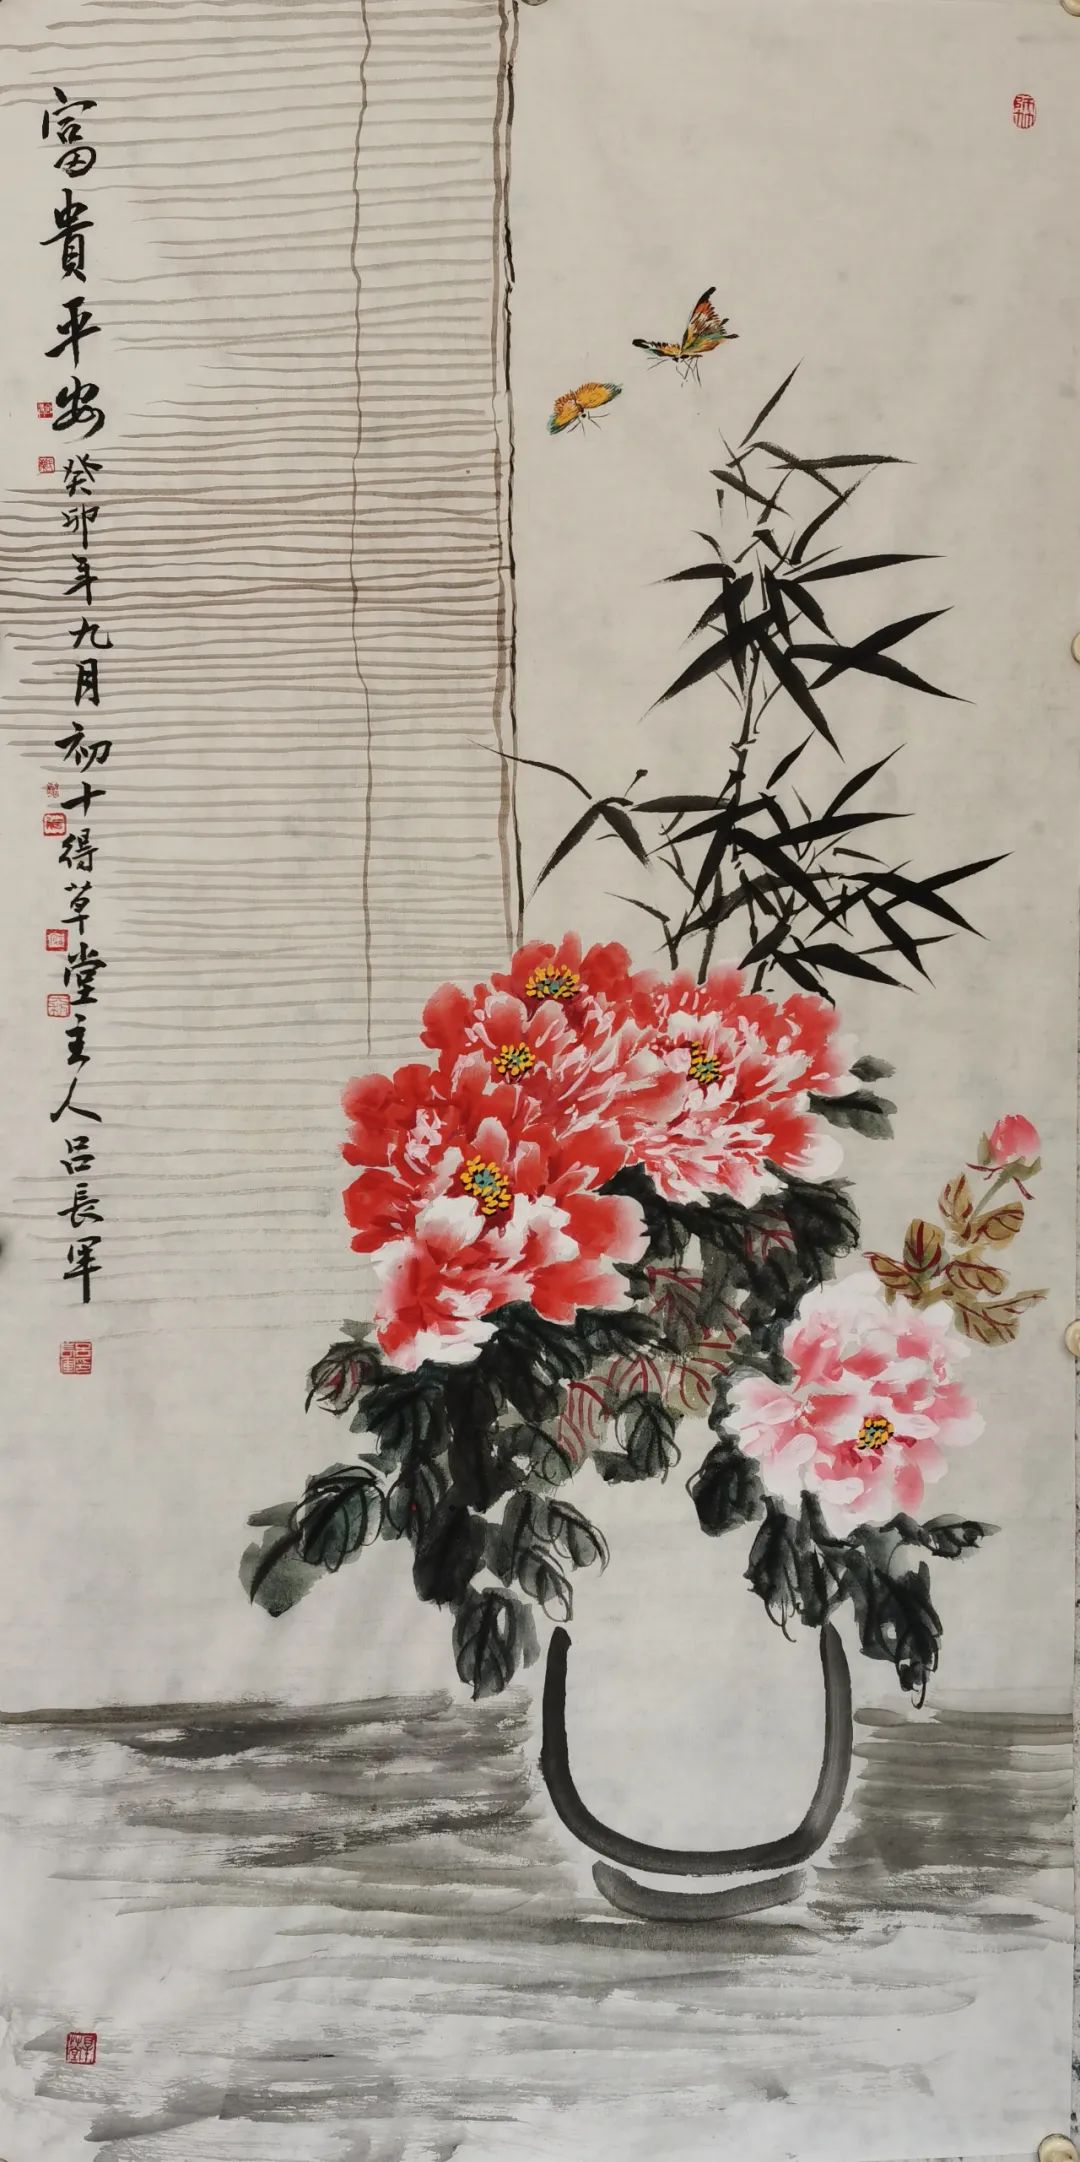 富貴平安
癸卯年九月初十得草堂主人吕長軍